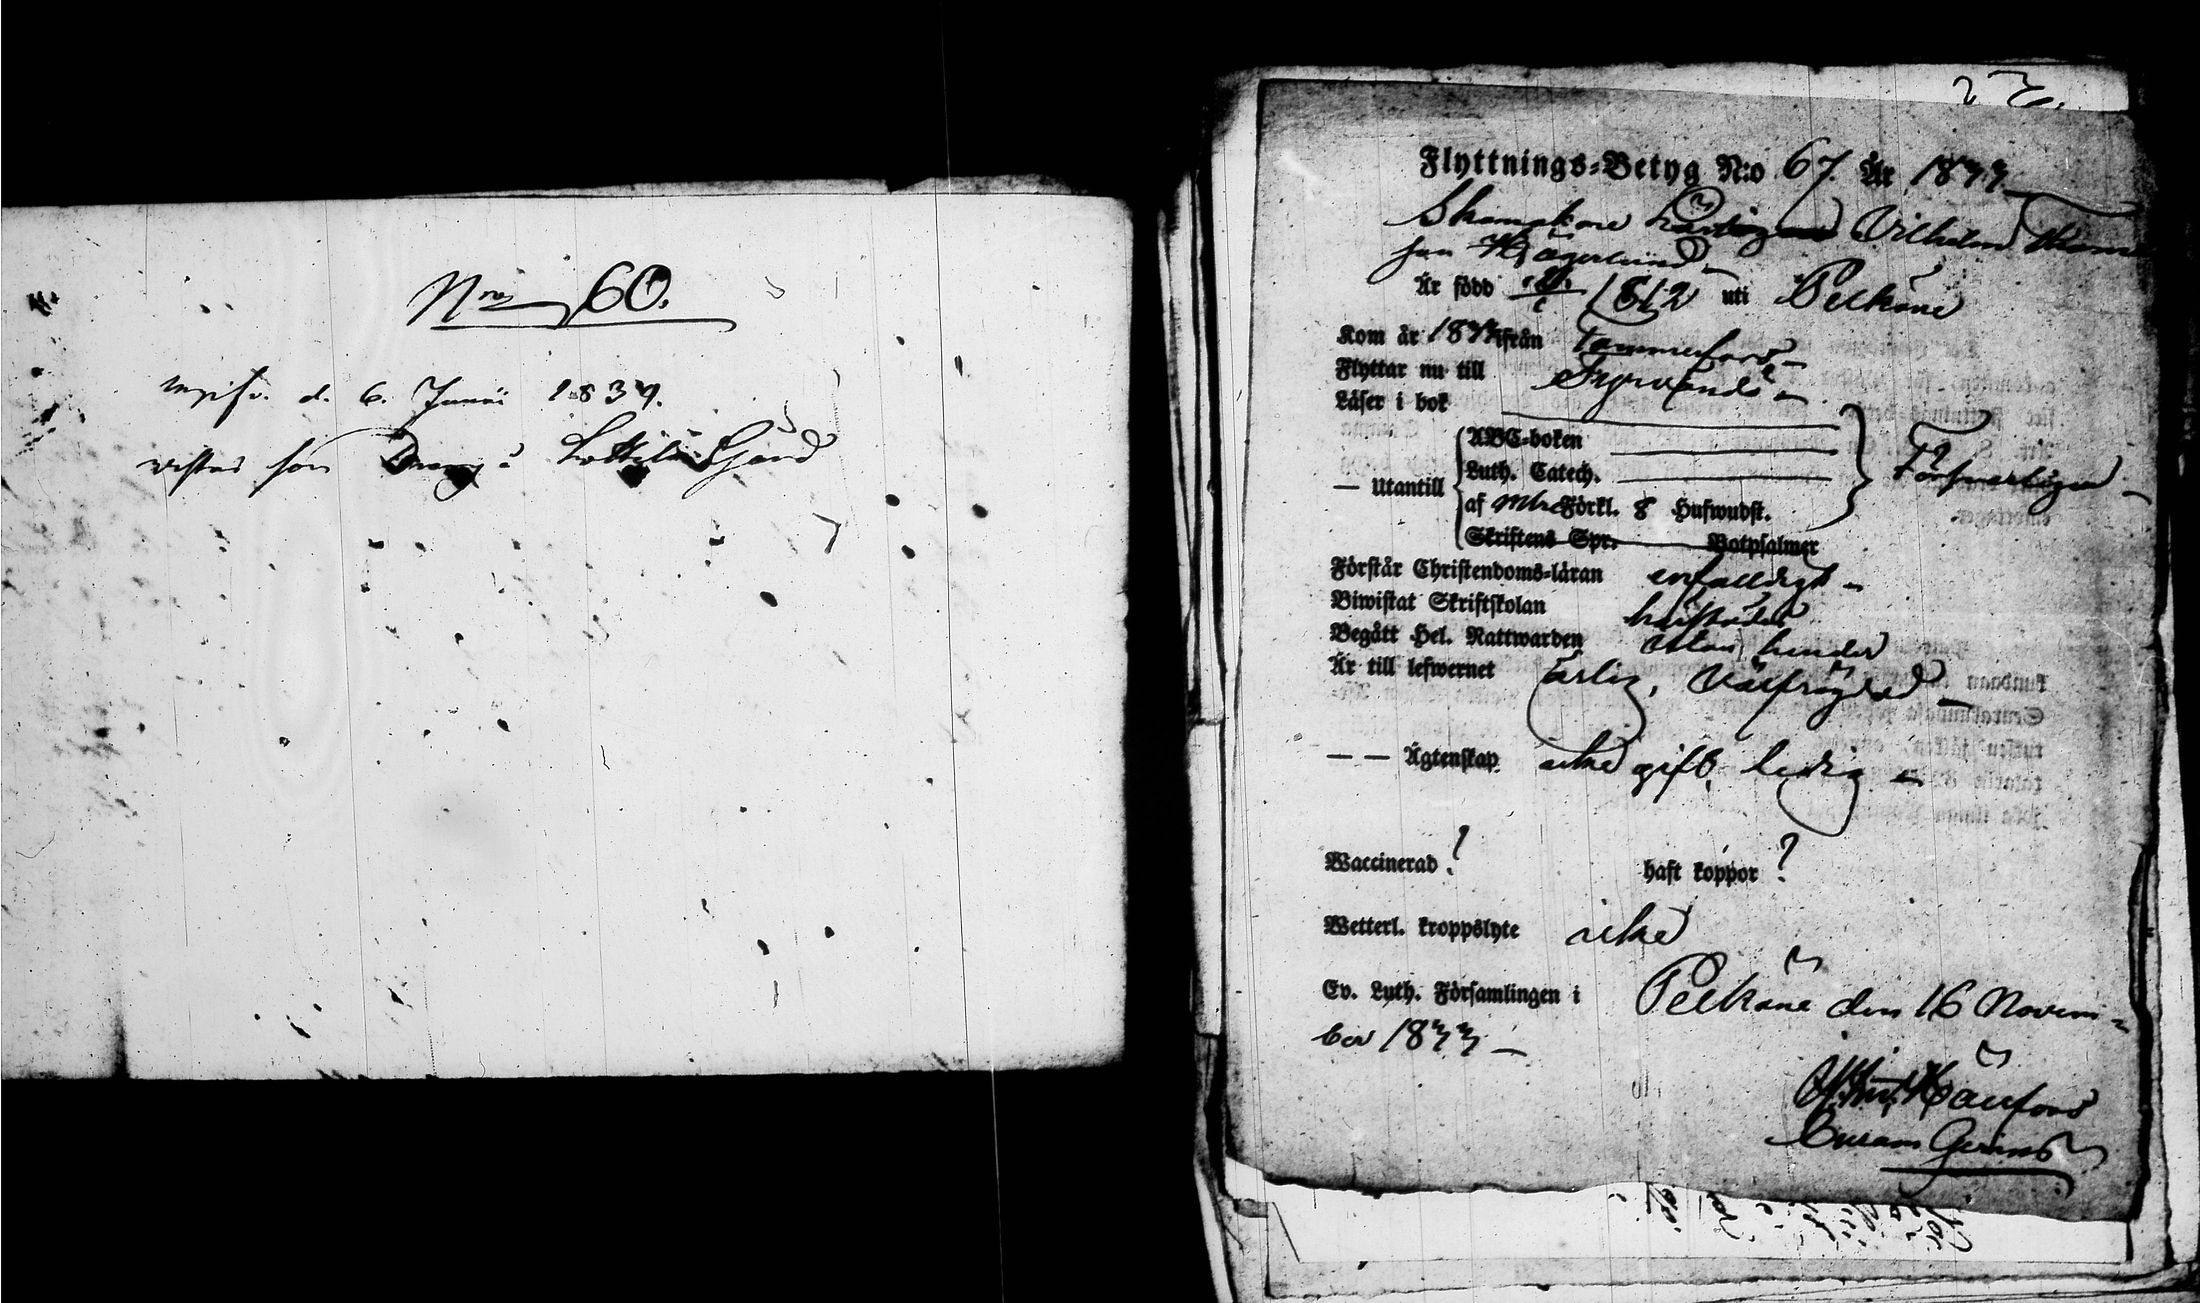 Nro 60.
d. 6. Junii 1834.
som Dräng å
Flyttnings-Betyg N:o 67. År 1833
Skomakare Lärlingen Vilhelm
son Hägerlund
Är född 1812 uti Pelkäne
Kom år 1833 ifrån Tammerfors
Flyttar nu till Tyrvändö
Läser i bok
— Utantill
ABC-boken
Luth. Catech.
af Förkl. 8 Hufwudst.
Skriftens Spr. Botpsalmer
Försvarligen
Förstår Christendoms-läran enfaldigt
Biwistat Skriftskolan
Begått Hel. Nattwarden utan hinder
Är till lefwernet ärlig, välfrägdad
— — Ägtenskap icke gift, ledig
Waccinerad? haft koppor?
Wetterl. kroppslyte icke
Ev. Luth. Församlingen i Pelkäne den 16 Novem-
ber 1833